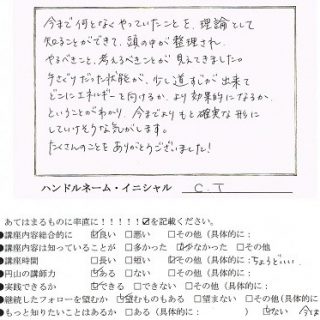 今まで何となくやっていたことを、理論として
知ることができて、頭の中が整理され、
やるべきこと、考えるべきことが見えてきました。
手さぐりだった状態が、少し道すじが出来て
どこにエネルギーを向けるか、より効果的になるか、
ということがわかり、今までよりもと確実な形に
していけそうな気がします。
たくさんのことをありがとうございました!
ハンドルネーム・イニシャル C.T
あてはまるものに率直に!!!!!☑を記載ください。
●講座内容総合的に ☑良い □悪い □その他（具体的に：
●講座内容は知っていることが □多かった ☑少なかった □その他
●講座時間 □長い □短い ☑その他（具体的に：ちょうどいい
●円山の講師力 ☑ある □ない □その他（具体的に：
●実践できるか ☑できる □できない □その他（具体的に：
●継続したフォローを望むか ☑望むものもある □望まない □その他（具体的
●もっと知りたいことはあるか □ある（具体的に： ）☑ない 今は